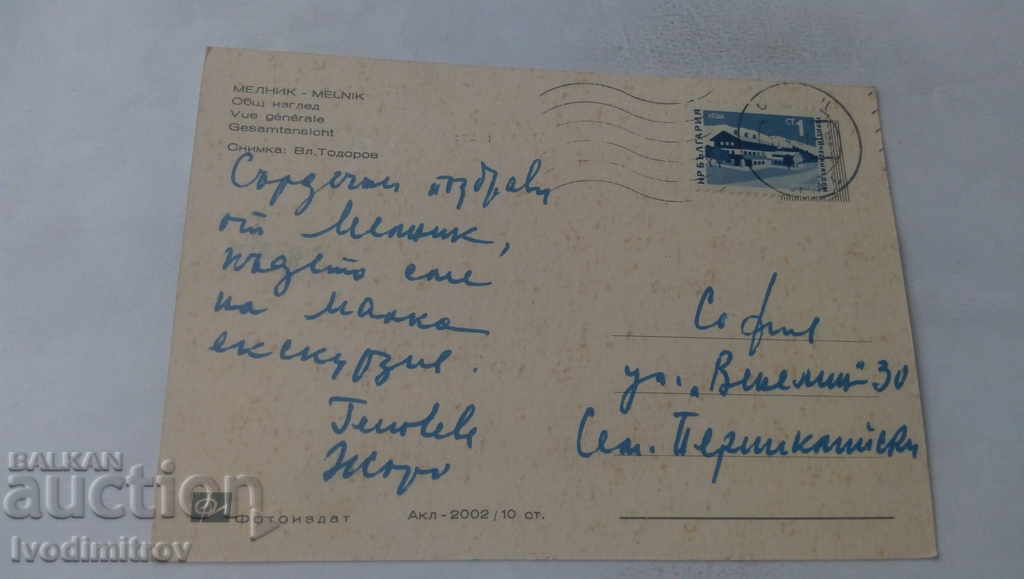 МЕЛНИК - MELNIK
Общ изглед
Vue générale
Gesamtansicht
Снимка: Вл. Тодоров
Сърдечни поздрави
от Мелник,
където сме
на малка
екскурзия.
Геновева
Жоро
НР БЪЛГАРИЯ
СТ 1
София
ул. "Венелин" 30
Сем.
Фотоиздат
Акл-2002/10 ст.
BALKAN
auction
Ivodimitrov